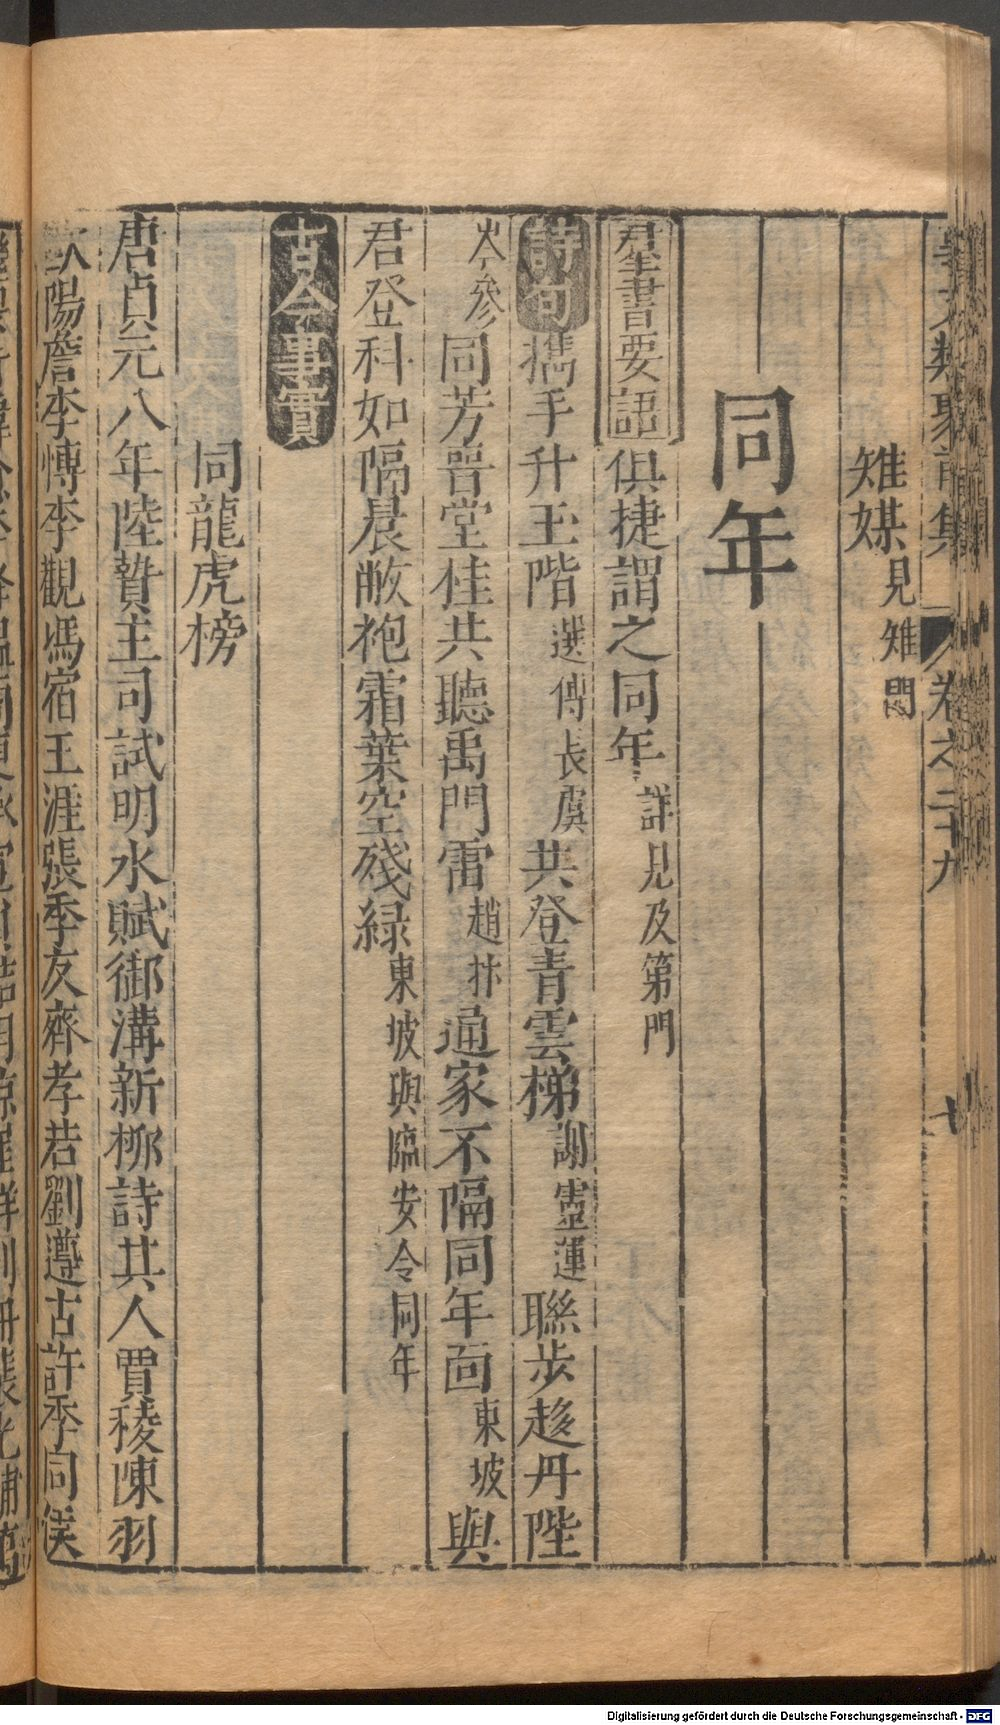 事文類聚前集 卷之二十九 七
雉媒見雉門
同年
羣書要語 俱捷謂之同年詳見及第門
詩句 攜手升玉階選傅長虞共登青雲梯謝靈運聯步趍丹陛
岑參同芳晉堂桂共聽禹門雷趙抃通家不隔同年面東坡與
君登科如隔晨敝袍霜葉空殘緑東坡與臨安令同年
古今事實
同龍虎榜
唐貞元八年陸贄主司試明水賦御溝新栁詩共人賈稜陳羽
歐陽詹李博李觀馮宿王涯張季友齊孝若劉遵古許季同侯
Digitalisierung gefördert durch die Deutsche Forschungsgemeinschaft - DFG